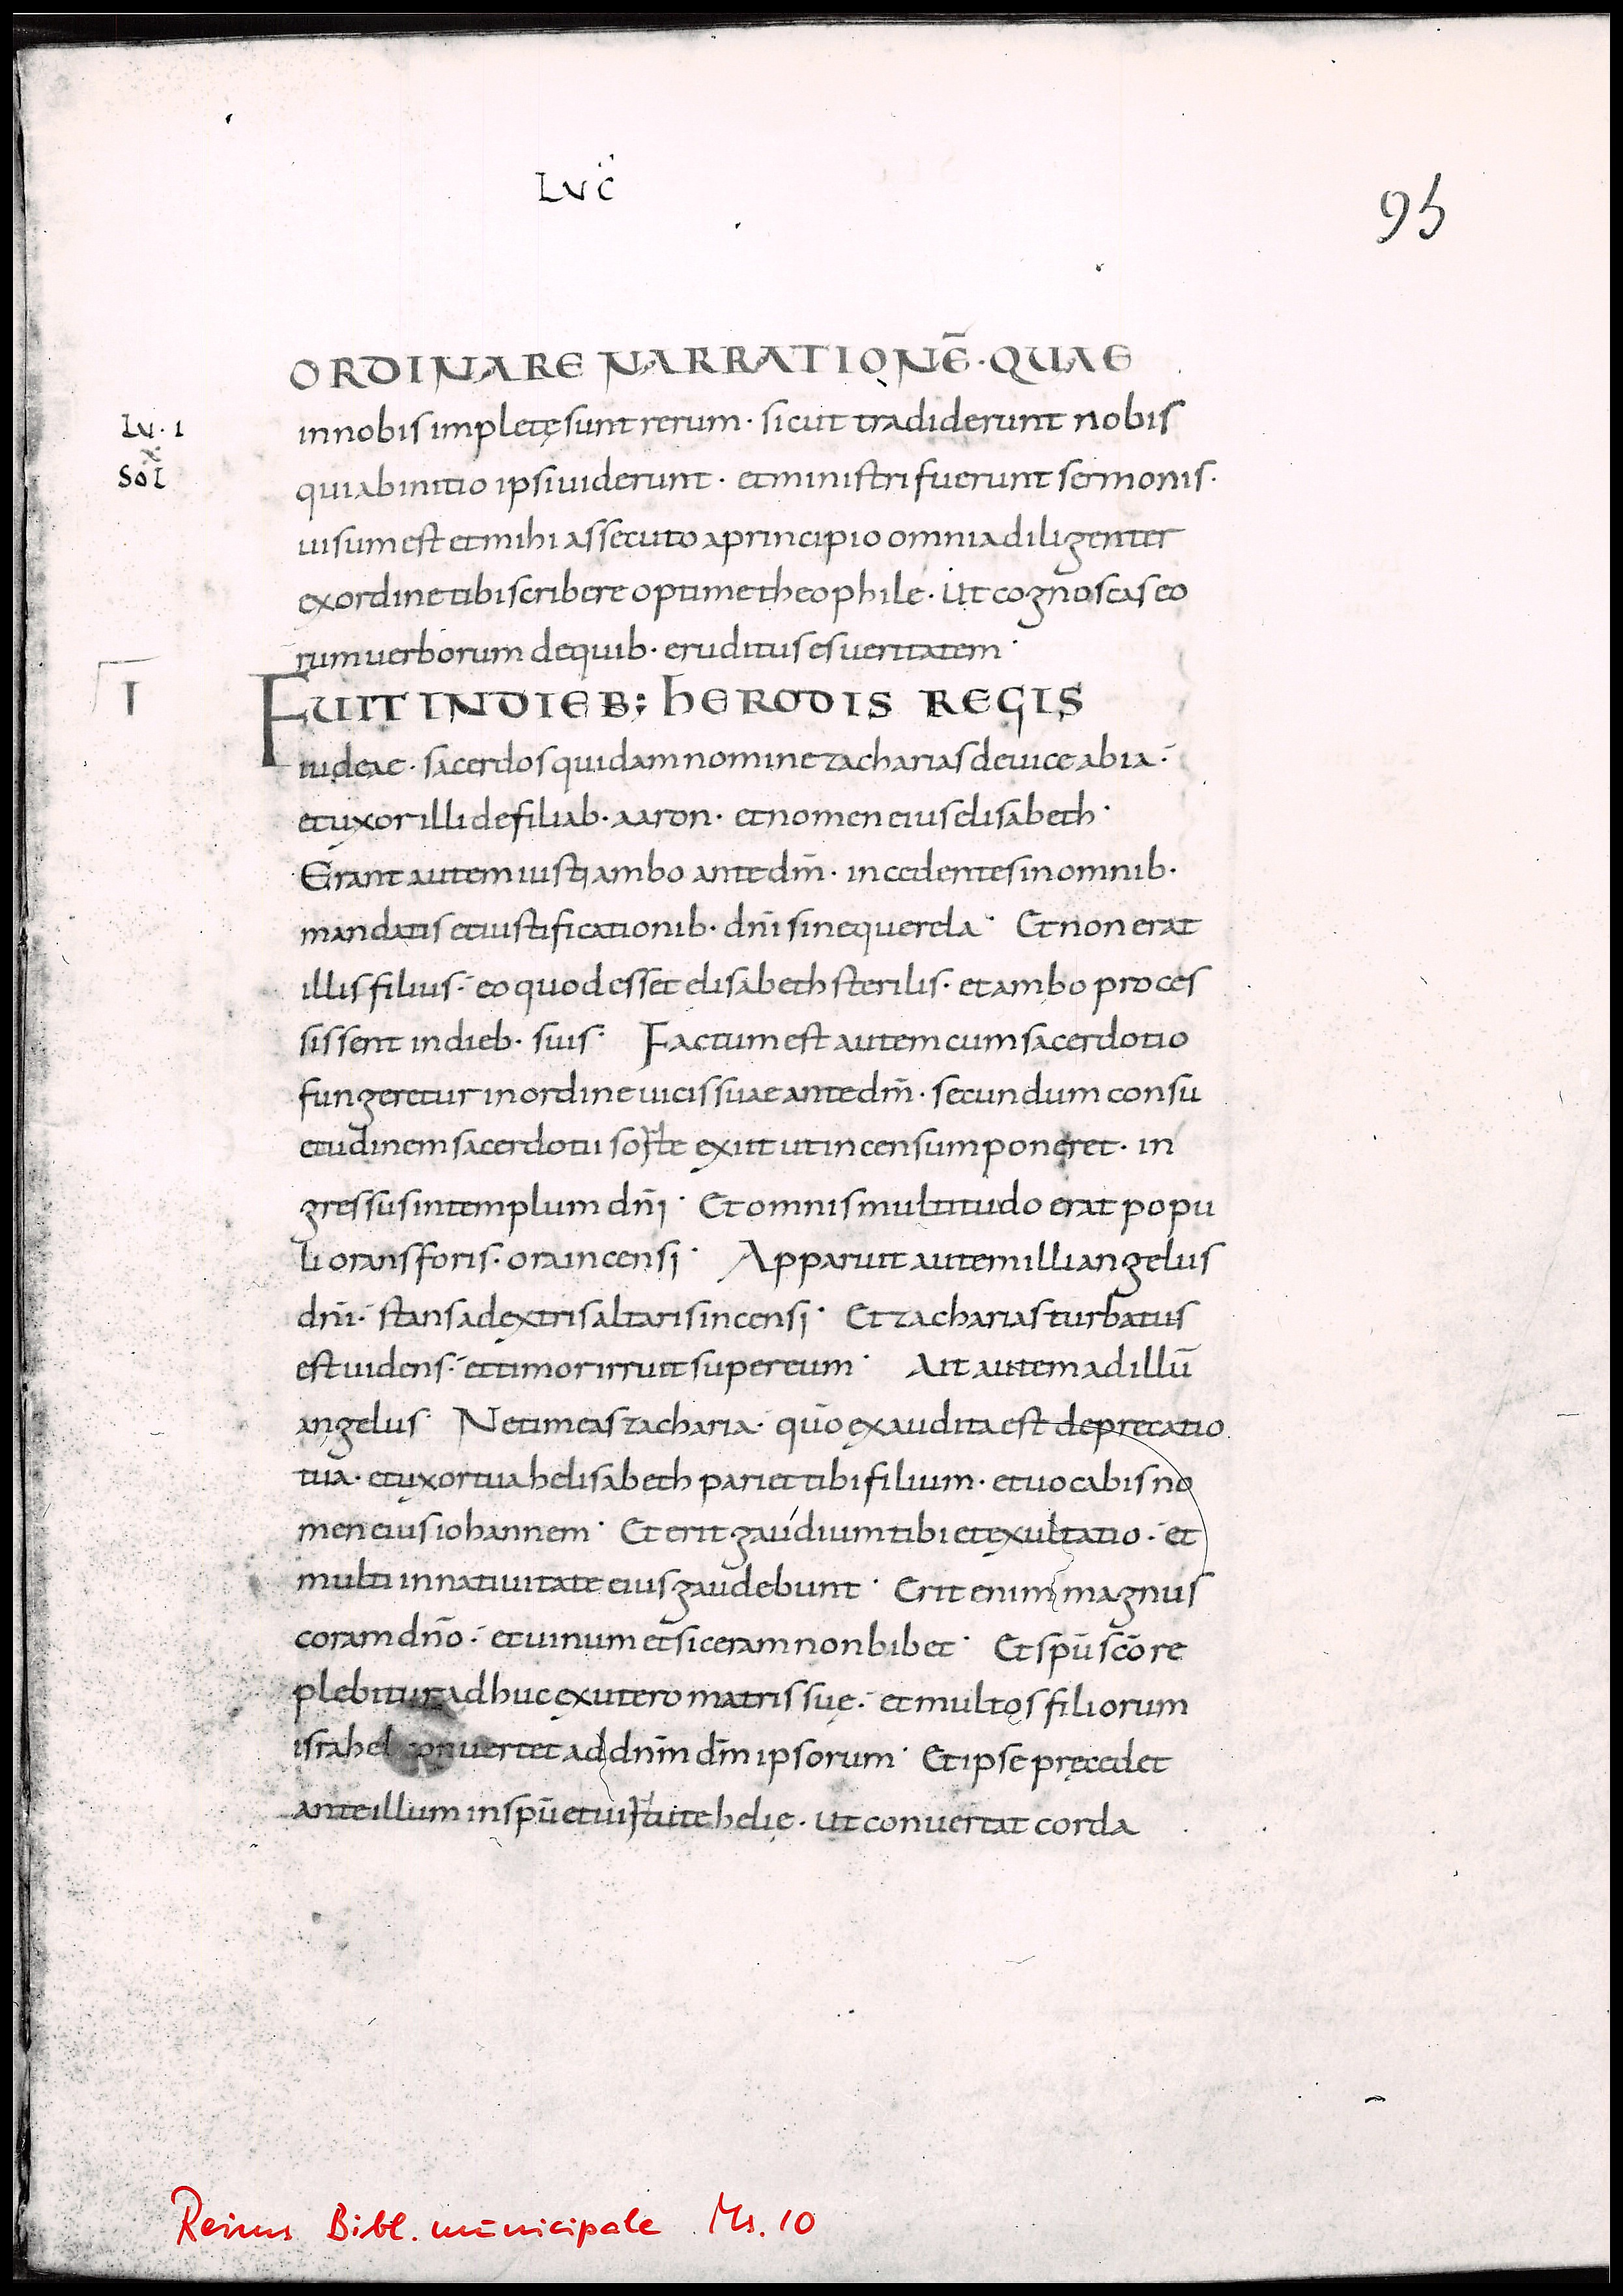 LUC̄
95
ORDINARE NARRATIONĒ · QUAE
Lu · I
in nobis impletę sunt rerum · sicut tradiderunt nobis
Sol
qui ab initio ipsi uiderunt · et ministri fuerunt sermonis ·
uisum est et mihi assecuto a principio omnia diligenter
ex ordine tibi scribere optime theophile · Ut cognoscas eo
rum uerborum de quib · eruditus es ueritatem ·
I
FUIT IN DIEB; hERODIS REGIS
iudeae · sacerdos quidam nomine zacharias de uice abia ·
et uxor illi de filiab · aaron · et nomen eius elisabeth ·
Erant autem iusti ambo ante dm̄ · incedentes in omnib ·
mandatis et iustificationib · dnī sine querela · Et non erat
illis filius · eo quod esset elisabeth sterilis · et ambo proces
sissent in dieb · suis · Factum est autem cum sacerdotio
fungeretur in ordine uicis suae ante dm̄ · secundum consu
etudinem sacerdotii sorte exiit ut incensum poneret · in
gressus in templum dnī · Et omnis multitudo erat popu
li orans foris · ora incensi · Apparuit autem illi angelus
dnī · stans a dextris altaris incensi · Et zacharias turbatus
est uidens · et timor irruit super eum · Ait autem ad illū
angelus · Ne timeas zacharia · quō exaudita est deprecatio
tua · et uxor tua helisabeth pariet tibi filium · et uocabis no
men eius iohannem · Et erit gaudium tibi et exultatio · et
multi in natiuitate eius gaudebunt · Erit enim magnus
coram dnō · et uinum et siceram non bibet · Et spū scō re
plebitur adhuc ex utero matris suę · et multos filiorum
israhel conuertet ad dnm̄ dm̄ ipsorum · Et ipse pręcedet
ante illum in spū et uirtute helię · Ut conuertat corda
Reims Bibl. municipale Ms. 10